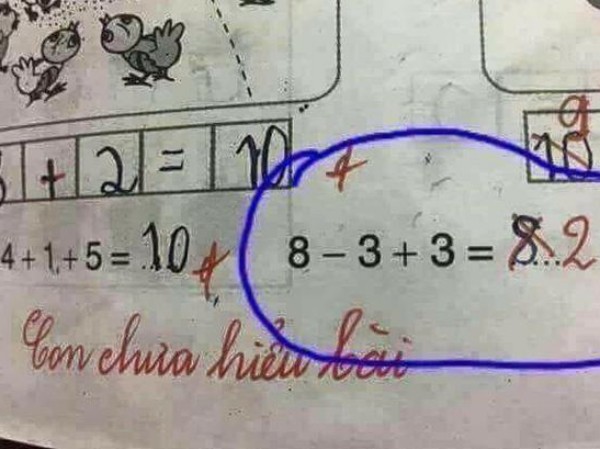 9
+ 2 = 10 10
4 + 1 + 5 = 10 8 – 3 + 3 = 8 2
Con chưa hiểu bài